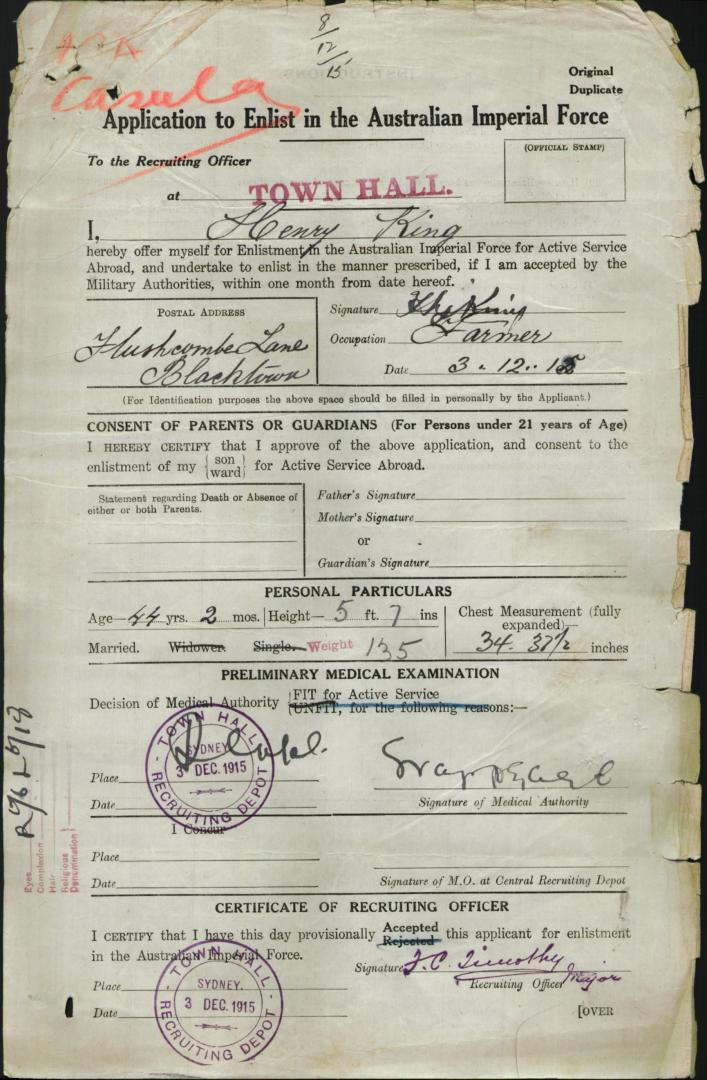 8/12/15
Casula
Original
Duplicate
Application to Enlist in the Australian Imperial Force
(OFFICIAL STAMP)
To the Recruiting Officer
at TOWN HALL.
I, Henry King
hereby offer myself for Enlistment in the Australian Imperial Force for Active Service
Abroad, and undertake to enlist in the manner prescribed, if I am accepted by the
Military Authorities, within one month from date hereof.
POSTAL ADDRESS
Flushcombe Lane
Blacktown
Signature King
Occupation Farmer
Date 3.12.15
(For Identification purposes the above space should be filled in personally by the Applicant.)
CONSENT OF PARENTS OR GUARDIANS (For Persons under 21 years of Age)
I HEREBY CERTIFY that I approve of the above application, and consent to the
enlistment of my {son ward} for Active Service Abroad.
Statement regarding Death or Absence of
either or both Parents.
Father's Signature
Mother's Signature
or
Guardian's Signature
PERSONAL PARTICULARS
Age—44 yrs. 2 mos. Height—5 ft. 7 ins
Chest Measurement (fully
expanded)—
34-37½ inches
Married. Widower. Single. Weight 135
PRELIMINARY MEDICAL EXAMINATION
Decision of Medical Authority {FIT for Active Service
UNFIT, for the following reasons:—
TOWN HALL
SYDNEY
3 DEC. 1915
RECRUITING DEPOT
Place
Date
Signature of Medical Authority
I Concur
Place
Date
Signature of M.O. at Central Recruiting Depot
Eyes
Complexion
Hair
Religious
Denomination
CERTIFICATE OF RECRUITING OFFICER
I CERTIFY that I have this day provisionally Accepted Rejected this applicant for enlistment
in the Australian Imperial Force.
Signature F.C. Timothy
Recruiting Officer Major
TOWN HALL
SYDNEY.
3 DEC. 1915
RECRUITING DEPOT
Place
Date
[OVER